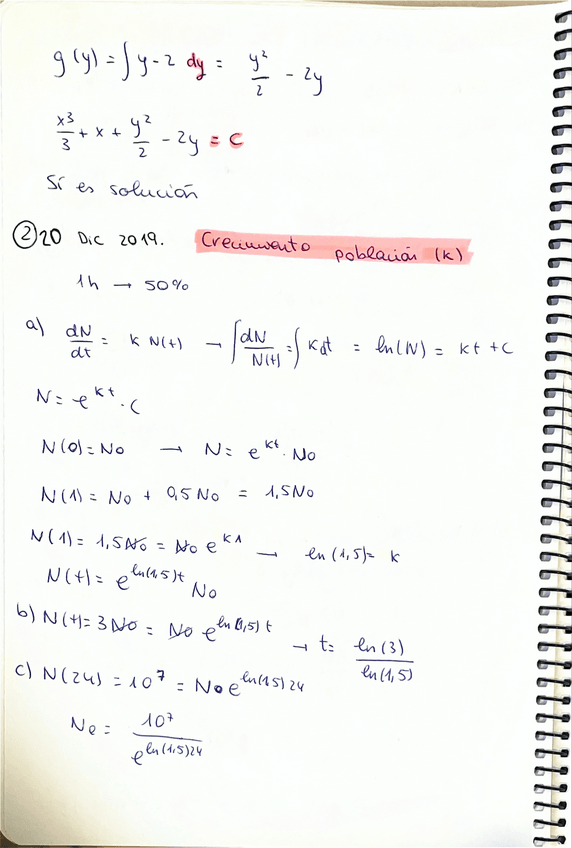 g(y) = ∫ y - 2 dy = y²/2 - 2y
x³/3 + x + y²/2 - 2y = C
Sí es solución
② 20 Dic 2019. Crecimiento población (k)
1h → 50%
a) dN/dt = k N(t) → ∫ dN/N(t) = ∫ k dt = ln(N) = kt + C
N = e^kt · C
N(0) = No → N = e^kt · No
N(1) = No + 0,5 No = 1,5No
N(1) = 1,5No = No e^k1 → ln(1,5) = k
N(t) = e^ln(1,5)t No
b) N(t) = 3No = No e^ln(1,5)t → t = ln(3)/ln(1,5)
c) N(24) = 10⁷ = No e^ln(1,5)24
No = 10⁷/e^ln(1,5)24